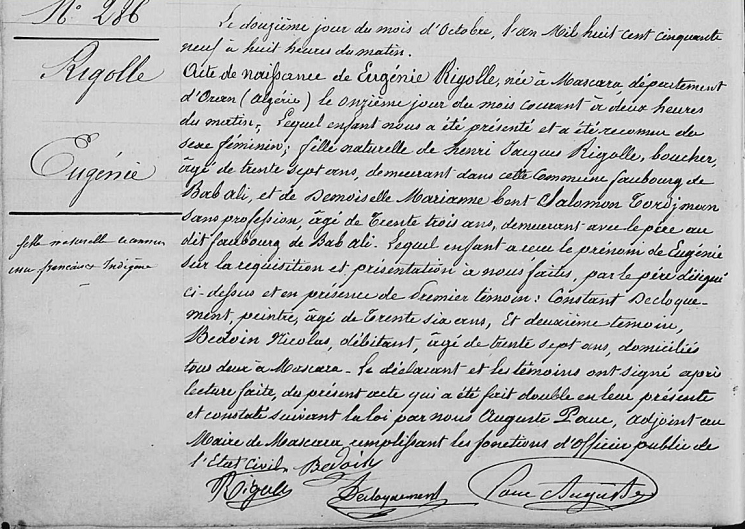 N° 286
Rigolle
Eugénie
fille naturelle reconnue
Indigène
Le douzième jour du mois d'Octobre, l'an Mil huit cent cinquante
neuf à huit heures du matin.
Acte de naissance de Eugénie Rigolle, née à Mascara, département
d'Oran (Algérie) le onzième jour du mois courant à deux heures
du matin; Lequel enfant nous a été présenté et a été reconnu du
sexe féminin; fille naturelle de henri Jacques Rigolle, boucher,
âgé de trente sept ans, demeurant dans cette Commune faubourg de
Bab ali, et de Demoiselle Marianne bent Salomon Tordjman
sans profession, âgé de Trente trois ans, demeurant avec le père au
dit faubourg de Bab ali. Lequel enfant a reçu le prénom de Eugénie
sur la requisition et présentation à nous faites, par le père désigné
ci-dessus et en présence de Premier témoin: Constant Decloque-
ment, peintre, âgé de Trente six ans, Et deuxième témoin,
Bedoin Nicolas, débitant, âgé de trente sept ans, domiciliés
tous deux à Mascara - Le déclarant et les témoins ont signé après
lecture faite, du présent acte qui a été fait double en leur présente
et constaté suivant la loi par nous Auguste Pauc, adjoint au
Maire de Mascara remplissant les fonctions d'Officier public de
l'Etat Civil. Bedoin
Rigolle Decloquement Pauc Auguste